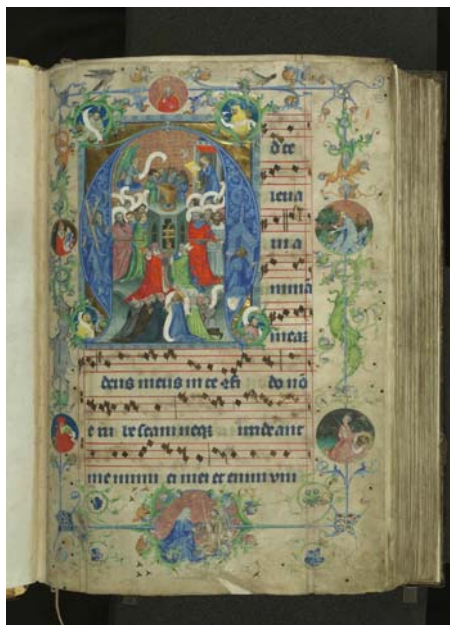 Ad te
leua
ui a
nimā
meaz
deus meus in te ꝯfi do nō
e ru bescam neqꝫ irrideant
me inimi ci mei et enim vni